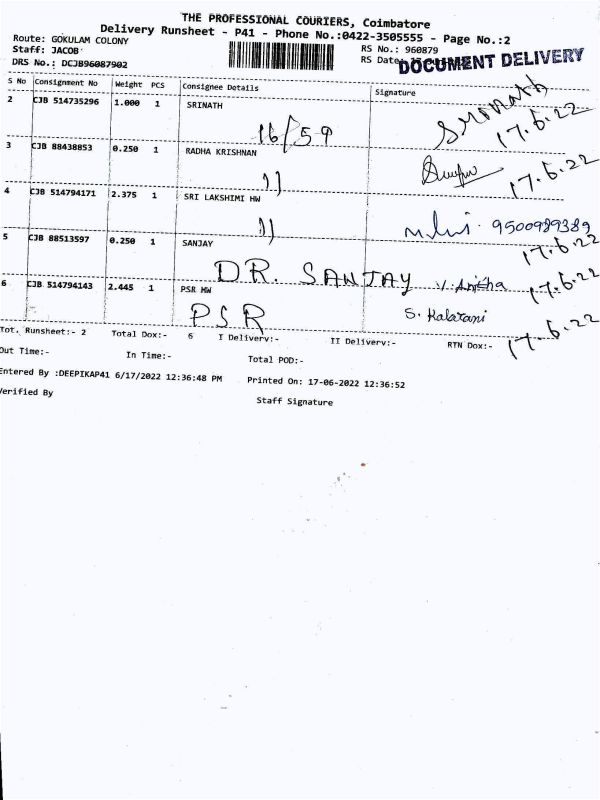 THE PROFESSIONAL COURIERS, Coimbatore
Delivery Runsheet - P41 - Phone No.:0422-3505555 - Page No.:2
Route: GOKULAM COLONY RS No.: 960879
Staff: JACOB RS Date
DRS No.: DCJB96087902 DOCUMENT DELIVERY
S No Consignment No Weight PCS Consignee Details Signature
2 CJB 514735296 1.000 1 SRINATH Srinath
16/59 17.6.22
3 CJB 88438853 0.250 1 RADHA KRISHNAN
11 17.6.22
4 CJB 514794171 2.375 1 SRI LAKSHIMI HW
11 9500989389
17.6.22
5 CJB 88513597 0.250 1 SANJAY
DR. SANJAY 17.6.22
6 CJB 514794143 2.445 1 PSR HW
PSR S. Kalarani
17.6.22
Tot. Runsheet:- 2 Total Dox:- 6 I Delivery:- II Delivery:- RTN Dox:-
Out Time:- In Time:- Total POD:-
Entered By :DEEPIKAP41 6/17/2022 12:36:48 PM Printed On: 17-06-2022 12:36:52
Verified By Staff Signature